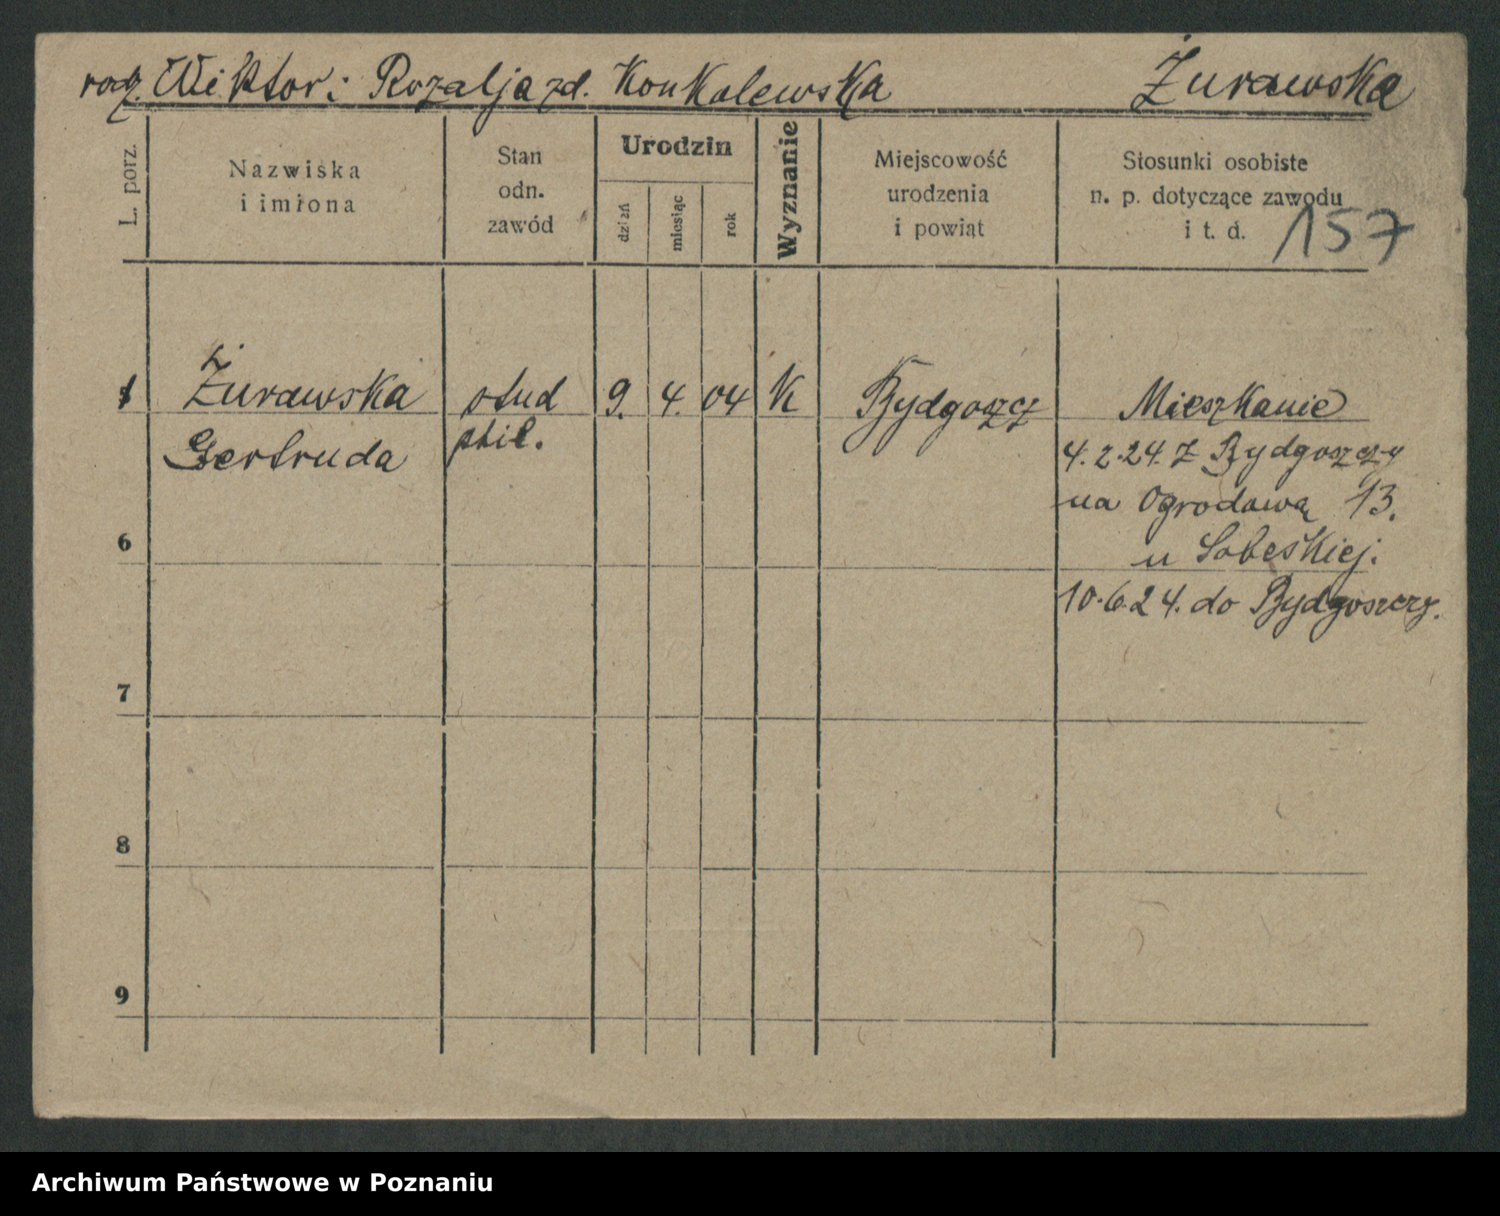 rodz. Wiktor i Rozalja zd. Konkolewska Żurawska
L. porz.
Nazwiska
i imiona
Stan
odn.
zawód
Urodzin
dzień
miesiąc
rok
Wyznanie
Miejscowość
urodzenia
i powiat
Stosunki osobiste
n. p. dotyczące zawodu
i t. d.
157
1 Żurawska stud 9. 4. 04 K Bydgoszcz Mieszkanie
Gertruda phil. 4.2.24. z Bydgoszczy
na Ogrodową 13.
6 u Sobeskiej.
10.6.24. do Bydgoszczy.
7
8
9
Archiwum Państwowe w Poznaniu